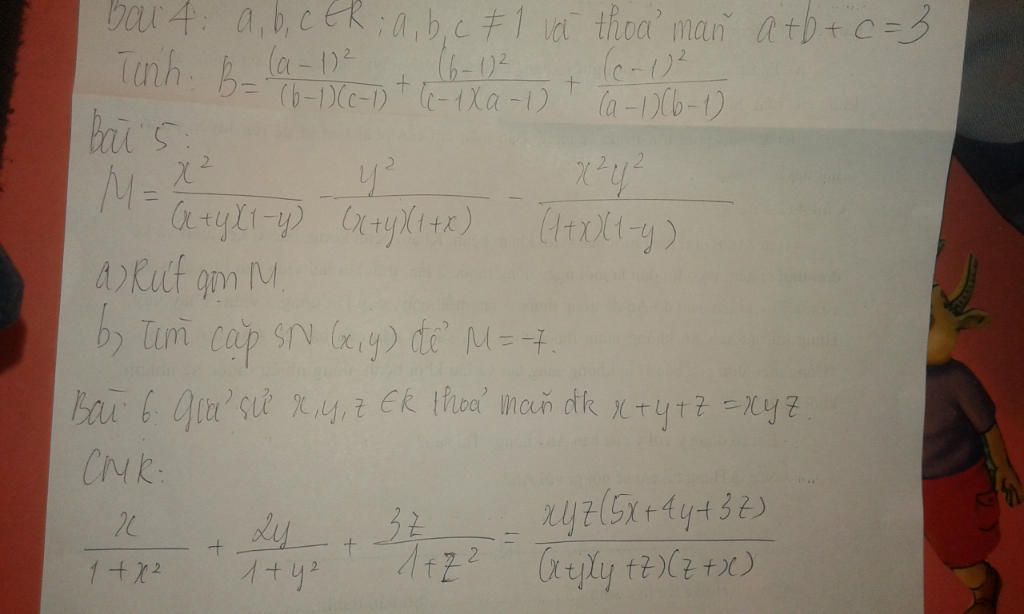 Bài 4: a,b,c ∈ R; a,b,c ≠ 1 và thoả mãn a+b+c=3
Tính: B = (a-1)²/(b-1)(c-1) + (b-1)²/(c-1)(a-1) + (c-1)²/(a-1)(b-1)
Bài 5:
M = x²/(x+y)(1-y) - y²/(x+y)(1+x) - x²y²/(1+x)(1-y)
a) Rút gọn M.
b, Tìm cặp SN (x,y) để M = -7.
Bài 6: Giả sử x,y,z ∈ R thoả mãn đk x+y+z = xyz.
CMR:
x/1+x² + 2y/1+y² + 3z/1+z² = xyz(5x+4y+3z)/(x+y)(y+z)(z+x)